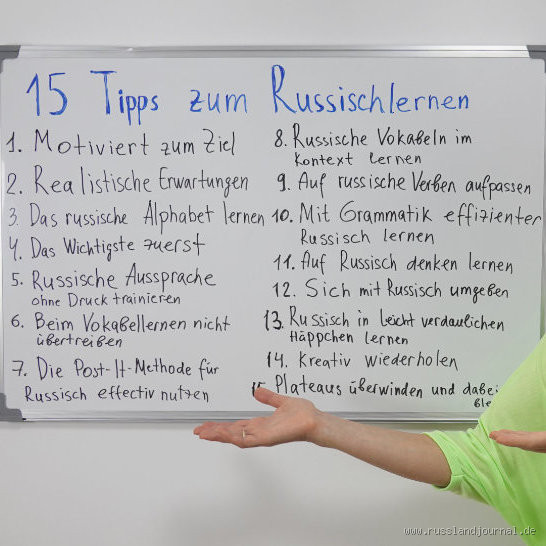 15 Tipps zum Russischlernen
1. Motiviert zum Ziel
2. Realistische Erwartungen
3. Das russische Alphabet lernen
4. Das Wichtigste zuerst
5. Russische Aussprache
ohne Druck trainieren
6. Beim Vokabellernen nicht
übertreiben
7. Die Post-It-Methode für
Russisch effectiv nutzen
8. Russische Vokabeln im
Kontext lernen
9. Auf russische Verben aufpassen
10. Mit Grammatik effizienter
Russisch lernen
11. Auf Russisch denken lernen
12. Sich mit Russisch umgeben
13. Russisch in leicht verdaulichen
Häppchen lernen
14. Kreativ wiederholen
15. Plateaus überwinden und dabei
www.russlandjournal.de